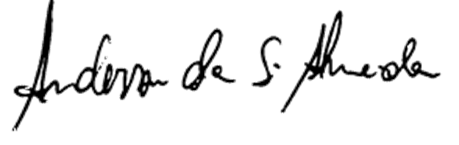 Anderson da S. Almeida